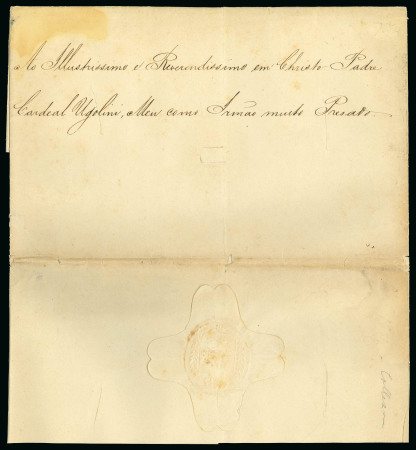 Ao Illustrissimo e Reverendissimo em Christo Padre
Cardeal Ugolini, Meu como Irmão muito Presado